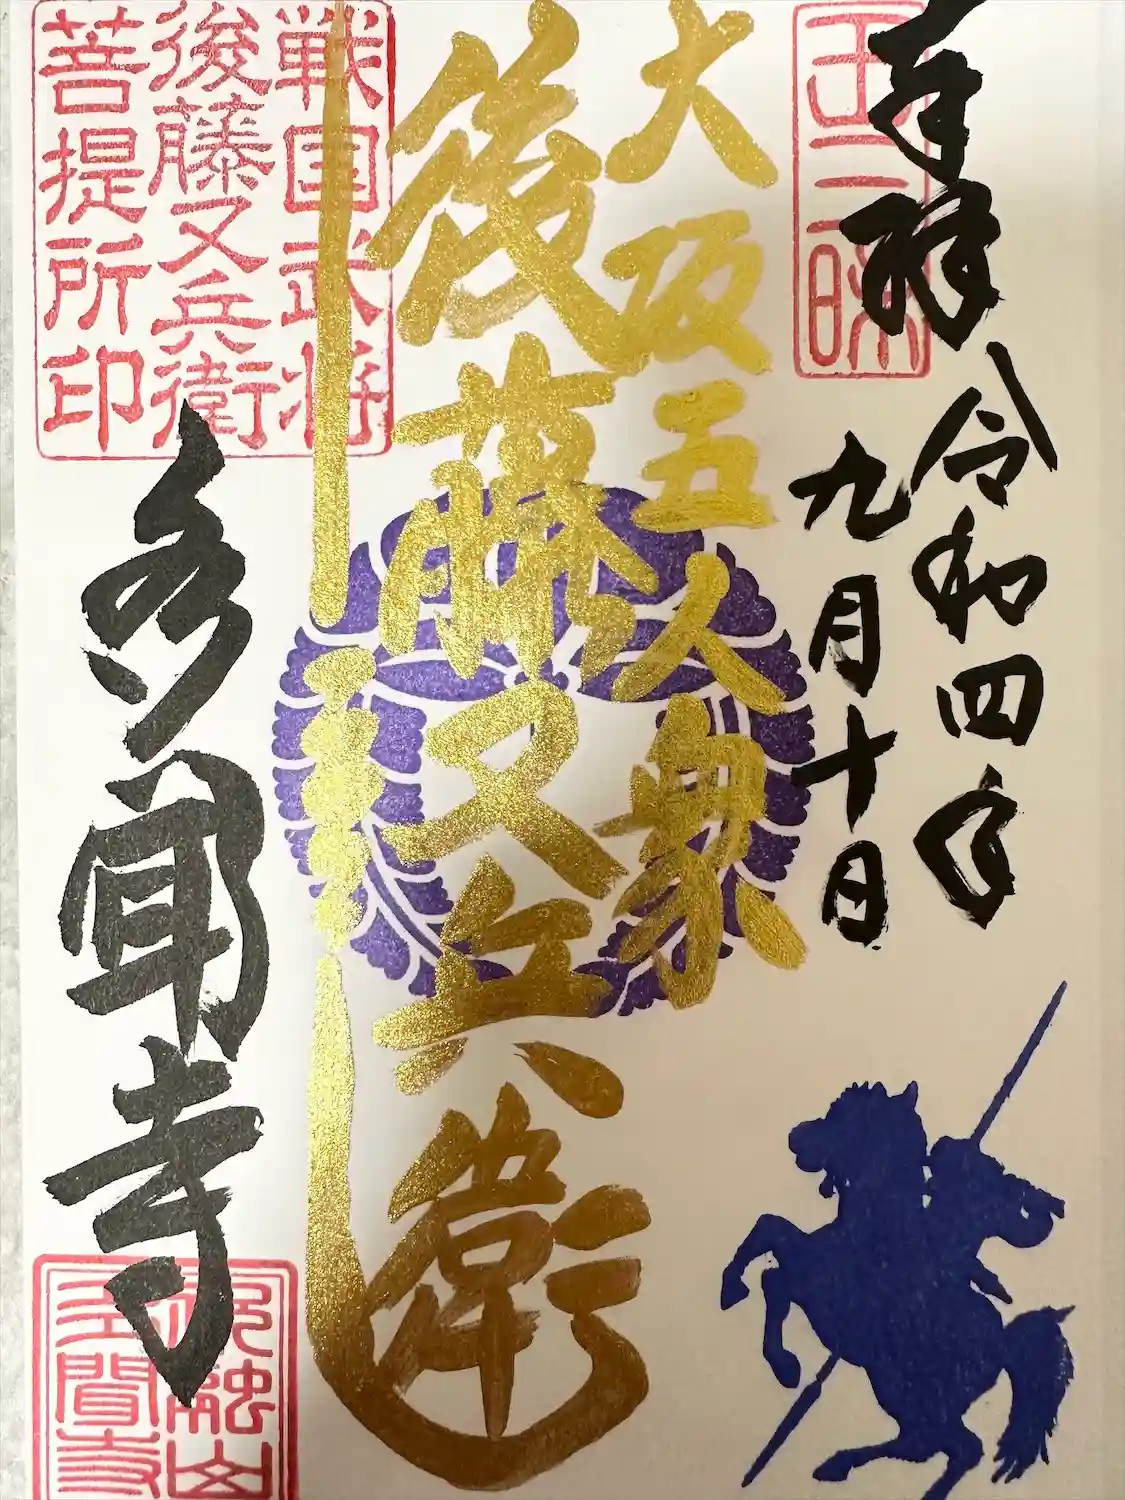 奉拝
令和四年
九月十日
三昧
大坂五人衆
後藤又兵衛
戦国武将
後藤又兵衛
菩提所印
多聞寺
融山
多聞寺